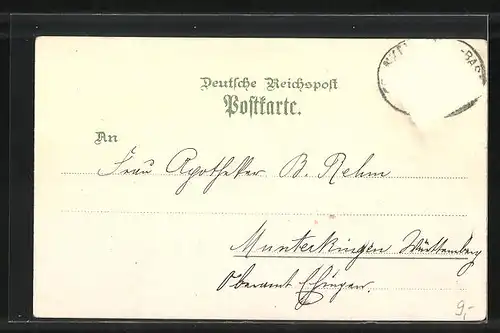 Deutsche Reichspost
Postkarte.
An
Frau Apotheker B. Rehm
Munterkingen Württemberg
Oberamt Ehingen.
9,-